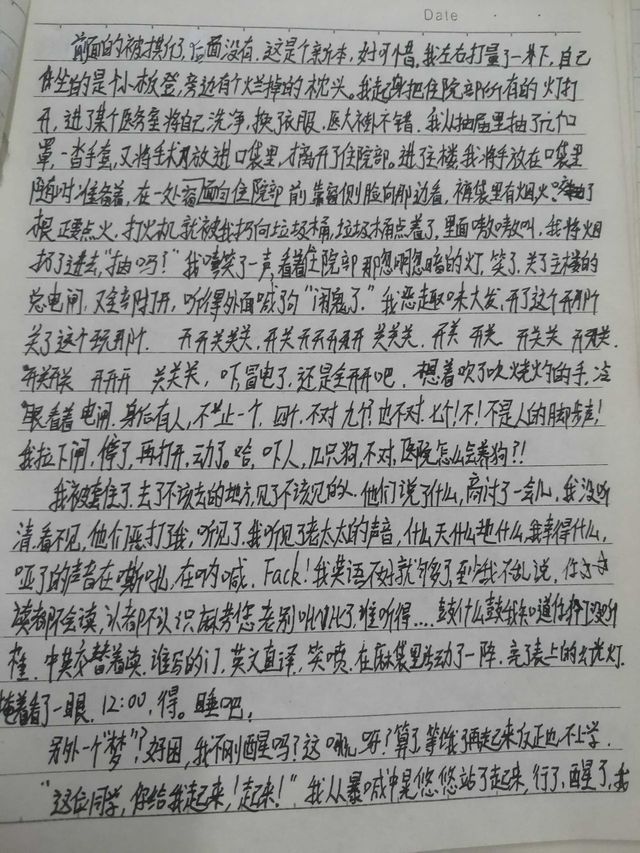 Date
前面的被撕了,后面没有,这是个新本,好可惜,我左右打量了一下,自己
坐的是个小板凳,旁边有个烂掉的枕头。我起身把住院部所有的灯打
开,进了某个医务室将自己洗净,换了衣服,医大褂不错,我从抽屉里抽了几个口
罩,一沓手套,又将手术刀放进口袋里,才离开了住院部。进了主楼,我将手放在口袋里
随时准备着,在一处窗面向住院部前,靠窗侧脸向那边看,裤袋里有烟火?抽了
根正要点火,打火机就被我扔向垃圾桶,垃圾桶点着了,里面嗷嗷叫,我将烟
扔了进去"抽吗?"我嘻笑了一声,看着住院部那忽明忽暗的灯,笑了,关了主楼的
总电闸,又全部打开,听得外面喊了句"闹鬼了。"我恶趣味大发,开了这个开那个
关了这个玩那个. 开开关关关,开关开开开开开 关关关. 开关 开关. 开关关 开开关.
开关开关 开开开 关关关,吓,冒电了,还是全开吧,想着吹了吹烧灼的手,冷
眼看着电闸,身后有人,不止一个,四个,不对,九个?也不对,七个!不!不是人的脚步声!
我拉下闸,停了,再打开,动了。哈,吓人,几只狗,不对,医院怎么会养狗?!
我被套住了,去了不该去的地方,见了不该见的人.他们说了什么,商讨了一会儿,我没听
清,看不见,他们恶打了我,听见了,我听见了老太太的声音,什么天什么地什么,我幸得什么,
哑了的声音在嘶吼,在呐喊. Fack!我英语不好就够了,至少我不乱说,
读都不会读,认都不认识,麻烦您老别叽叽了,谁听得....鼓什么鼓我知道
种. 中英交替着读. 谁写的门,英文直译,笑喷.在麻袋里动了一阵. 亮了表上的灯.
掩着看了一眼, 12:00,得。睡吧,
另外一个"梦"?好困,我不刚醒吗?这哪呀?算了,等饿了再起来反正也不上学.
"这位同学,你给我起来,!起来!"我从暴喊中晃悠悠站了起来,行了,醒了,我